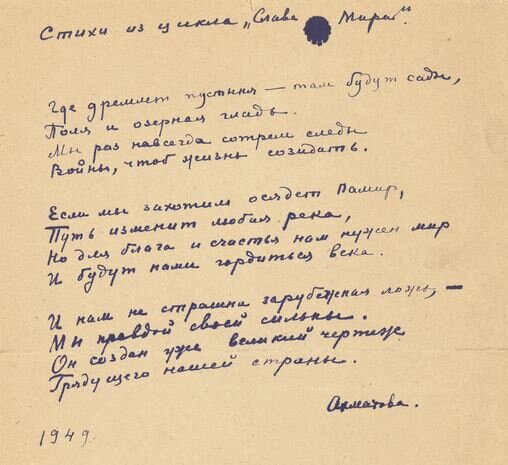 Стихи из цикла „Слава Миру".
Где дремлет пустыня — там будут сады,
Поля и озерная гладь.
Мы раз навсегда сотрем следы
Войны, чтоб жизнь созидать.
Если мы захотим осядет Памир,
Путь изменит любая река,
Но для блага и счастья нам нужен мир
И будут нами гордиться века.
И нам не страшна зарубежная ложь, —
Мы правдой своей сильны.
Он создан уже великий чертеж
Грядущего нашей страны.
Ахматова.
1949.